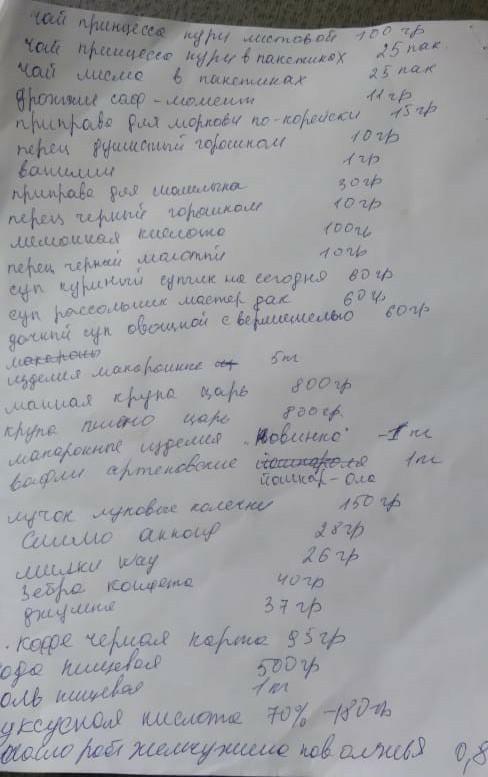 чай принцесса нури листовой 100 гр
чай принцесса нури в пакетиках 25 пак.
чай лисма в пакетиках 25 пак
дрожжи саф-момент 11 гр
приправа для моркови по-корейски 15 гр
перец душистый горошком 10 гр
ванилин 1 гр
приправа для шашлыка 30 гр
перец черный горошком 10 гр
лимонная кислота 100 гр
перец черный молотый 10 гр
суп куриный супчик на сегодня 60 гр
суп рассольник мастер дак 60 гр
дачный суп овощной с вермишелью 60 гр
макароны
изделия макаронные 5 кг
манная крупа царь 800 гр
крупа пшено царь 800 гр.
макаронные изделия "Новинка" - 1 кг
вафли артековские 1 кг
йошкар-ола
лучок луковые колечки 150 гр
28 гр
милки way 26 гр
зебра конфета 40 гр
37 гр
. кофе черная карта 95 гр
ода пищевая 500 гр
оль пищевая 1 кг
уксусная кислота 70% - 180 гр
жемчужина поволжья 0,8